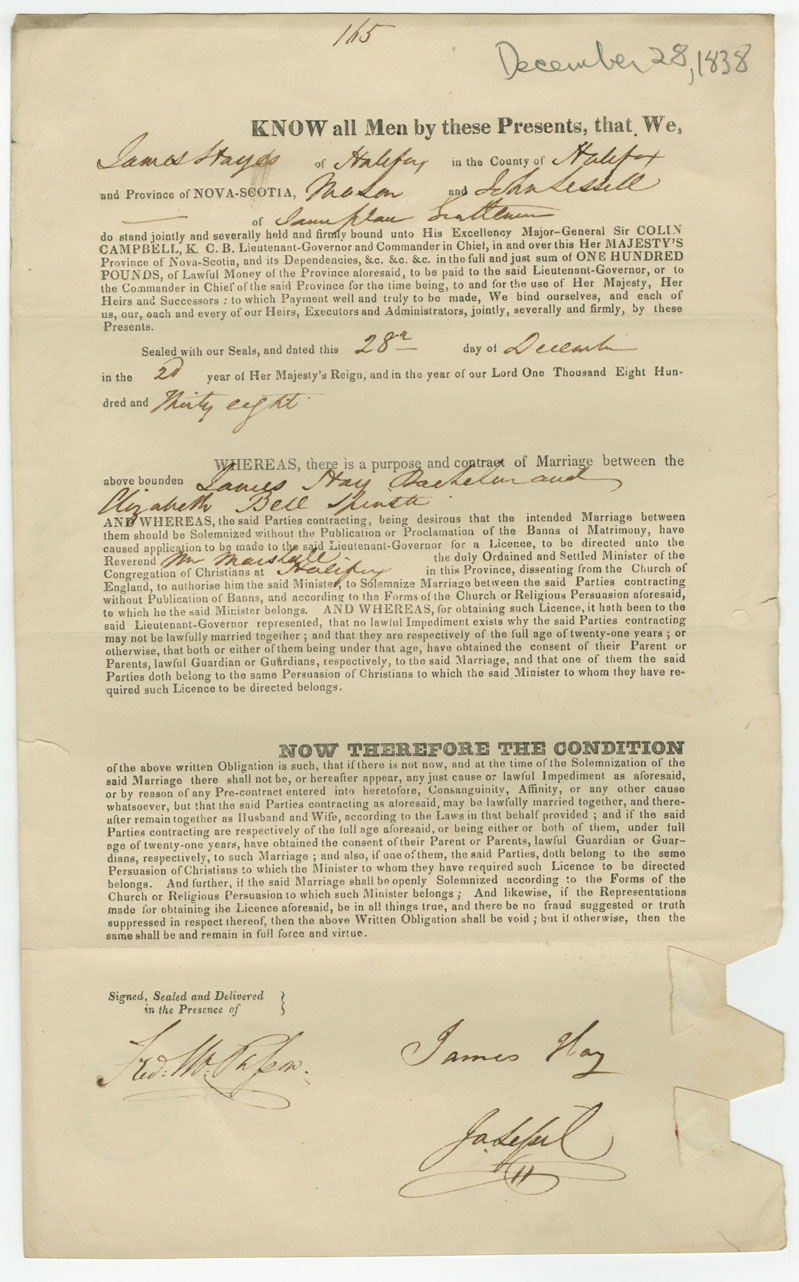 165
December 28, 1838
KNOW all Men by these Presents, that We,
James Hay of Halifax in the County of Halifax
and Province of NOVA-SCOTIA, Mason and John Lessell
of same place Gentleman
do stand jointly and severally held and firmly bound unto His Excellency Major-General Sir COLIN
CAMPBELL, K. C. B. Lieutenant-Governor and Commander in Chief, in and over this Her MAJESTY'S
Province of Nova-Scotia, and its Dependencies, &c. &c. &c. in the full and just sum of ONE HUNDRED
POUNDS, of Lawful Money of the Province aforesaid, to be paid to the said Lieutenant-Governor, or to
the Commander in Chief of the said Province for the time being, to and for the use of Her Majesty, Her
Heirs and Successors : to which Payment well and truly to be made, We bind ourselves, and each of
us, our, each and every of our Heirs, Executors and Administrators, jointly, severally and firmly, by these
Presents.
Sealed with our Seals, and dated this 28th day of December
in the 2d year of Her Majesty's Reign, and in the year of our Lord One Thousand Eight Hun-
dred and Thirty eight
WHEREAS, there is a purpose and contract of Marriage between the
above bounden James Hay Bachelor and
Elizabeth Bell Spinster
AND WHEREAS, the said Parties contracting, being desirous that the intended Marriage between
them should be Solemnized without the Publication or Proclamation of the Banns of Matrimony, have
caused application to be made to the said Lieutenant-Governor for a Licence, to be directed unto the
Reverend Mr Marshall the duly Ordained and Settled Minister of the
Congregation of Christians at Halifax in this Province, dissenting from the Church of
England, to authorise him the said Minister, to Solemnize Marriage between the said Parties contracting
without Publication of Banns, and according to the Forms of the Church or Religious Persuasion aforesaid,
to which he the said Minister belongs. AND WHEREAS, for obtaining such Licence, it hath been to the
said Lieutenant-Governor represented, that no lawful Impediment exists why the said Parties contracting
may not be lawfully married together ; and that they are respectively of the full age of twenty-one years ; or
otherwise, that both or either of them being under that age, have obtained the consent of their Parent or
Parents, lawful Guardian or Guardians, respectively, to the said Marriage, and that one of them the said
Parties doth belong to the same Persuasion of Christians to which the said Minister to whom they have re-
quired such Licence to be directed belongs.
NOW THEREFORE THE CONDITION
of the above written Obligation is such, that if there is not now, and at the time of the Solemnization of the
said Marriage there shall not be, or hereafter appear, any just cause or lawful Impediment as aforesaid,
or by reason of any Pre-contract entered into heretofore, Consanguinity, Affinity, or any other cause
whatsoever, but that the said Parties contracting as aforesaid, may be lawfully married together, and there-
after remain together as Husband and Wife, according to the Laws in that behalf provided ; and if the said
Parties contracting are respectively of the full age aforesaid, or being either or both of them, under full
age of twenty-one years, have obtained the consent of their Parent or Parents, lawful Guardian or Guar-
dians, respectively, to such Marriage ; and also, if one of them, the said Parties, doth belong to the same
Persuasion of Christians to which the Minister to whom they have required such Licence to be directed
belongs. And further, if the said Marriage shall be openly Solemnized according to the Forms of the
Church or Religious Persuasion to which such Minister belongs ; And likewise, if the Representations
made for obtaining the Licence aforesaid, be in all things true, and there be no fraud suggested or truth
suppressed in respect thereof, then the above Written Obligation shall be void ; but if otherwise, then the
same shall be and remain in full force and virtue.
Signed, Sealed and Delivered
in the Presence of
James Hay